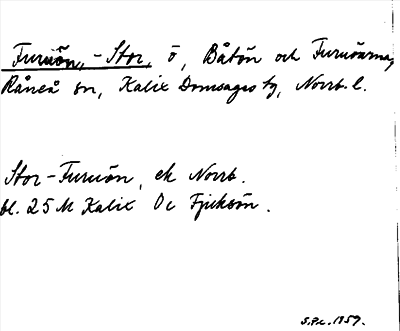 Furuön, -Stor, ö, Båtön och Furuöarna,
Råneå sn, Kalix Domsagas tg, Norrb. l.
Stor-Furuön, ek Norrb.
bl. 25 M Kalix Oc Fjuksön.
S.P.e. 1959.